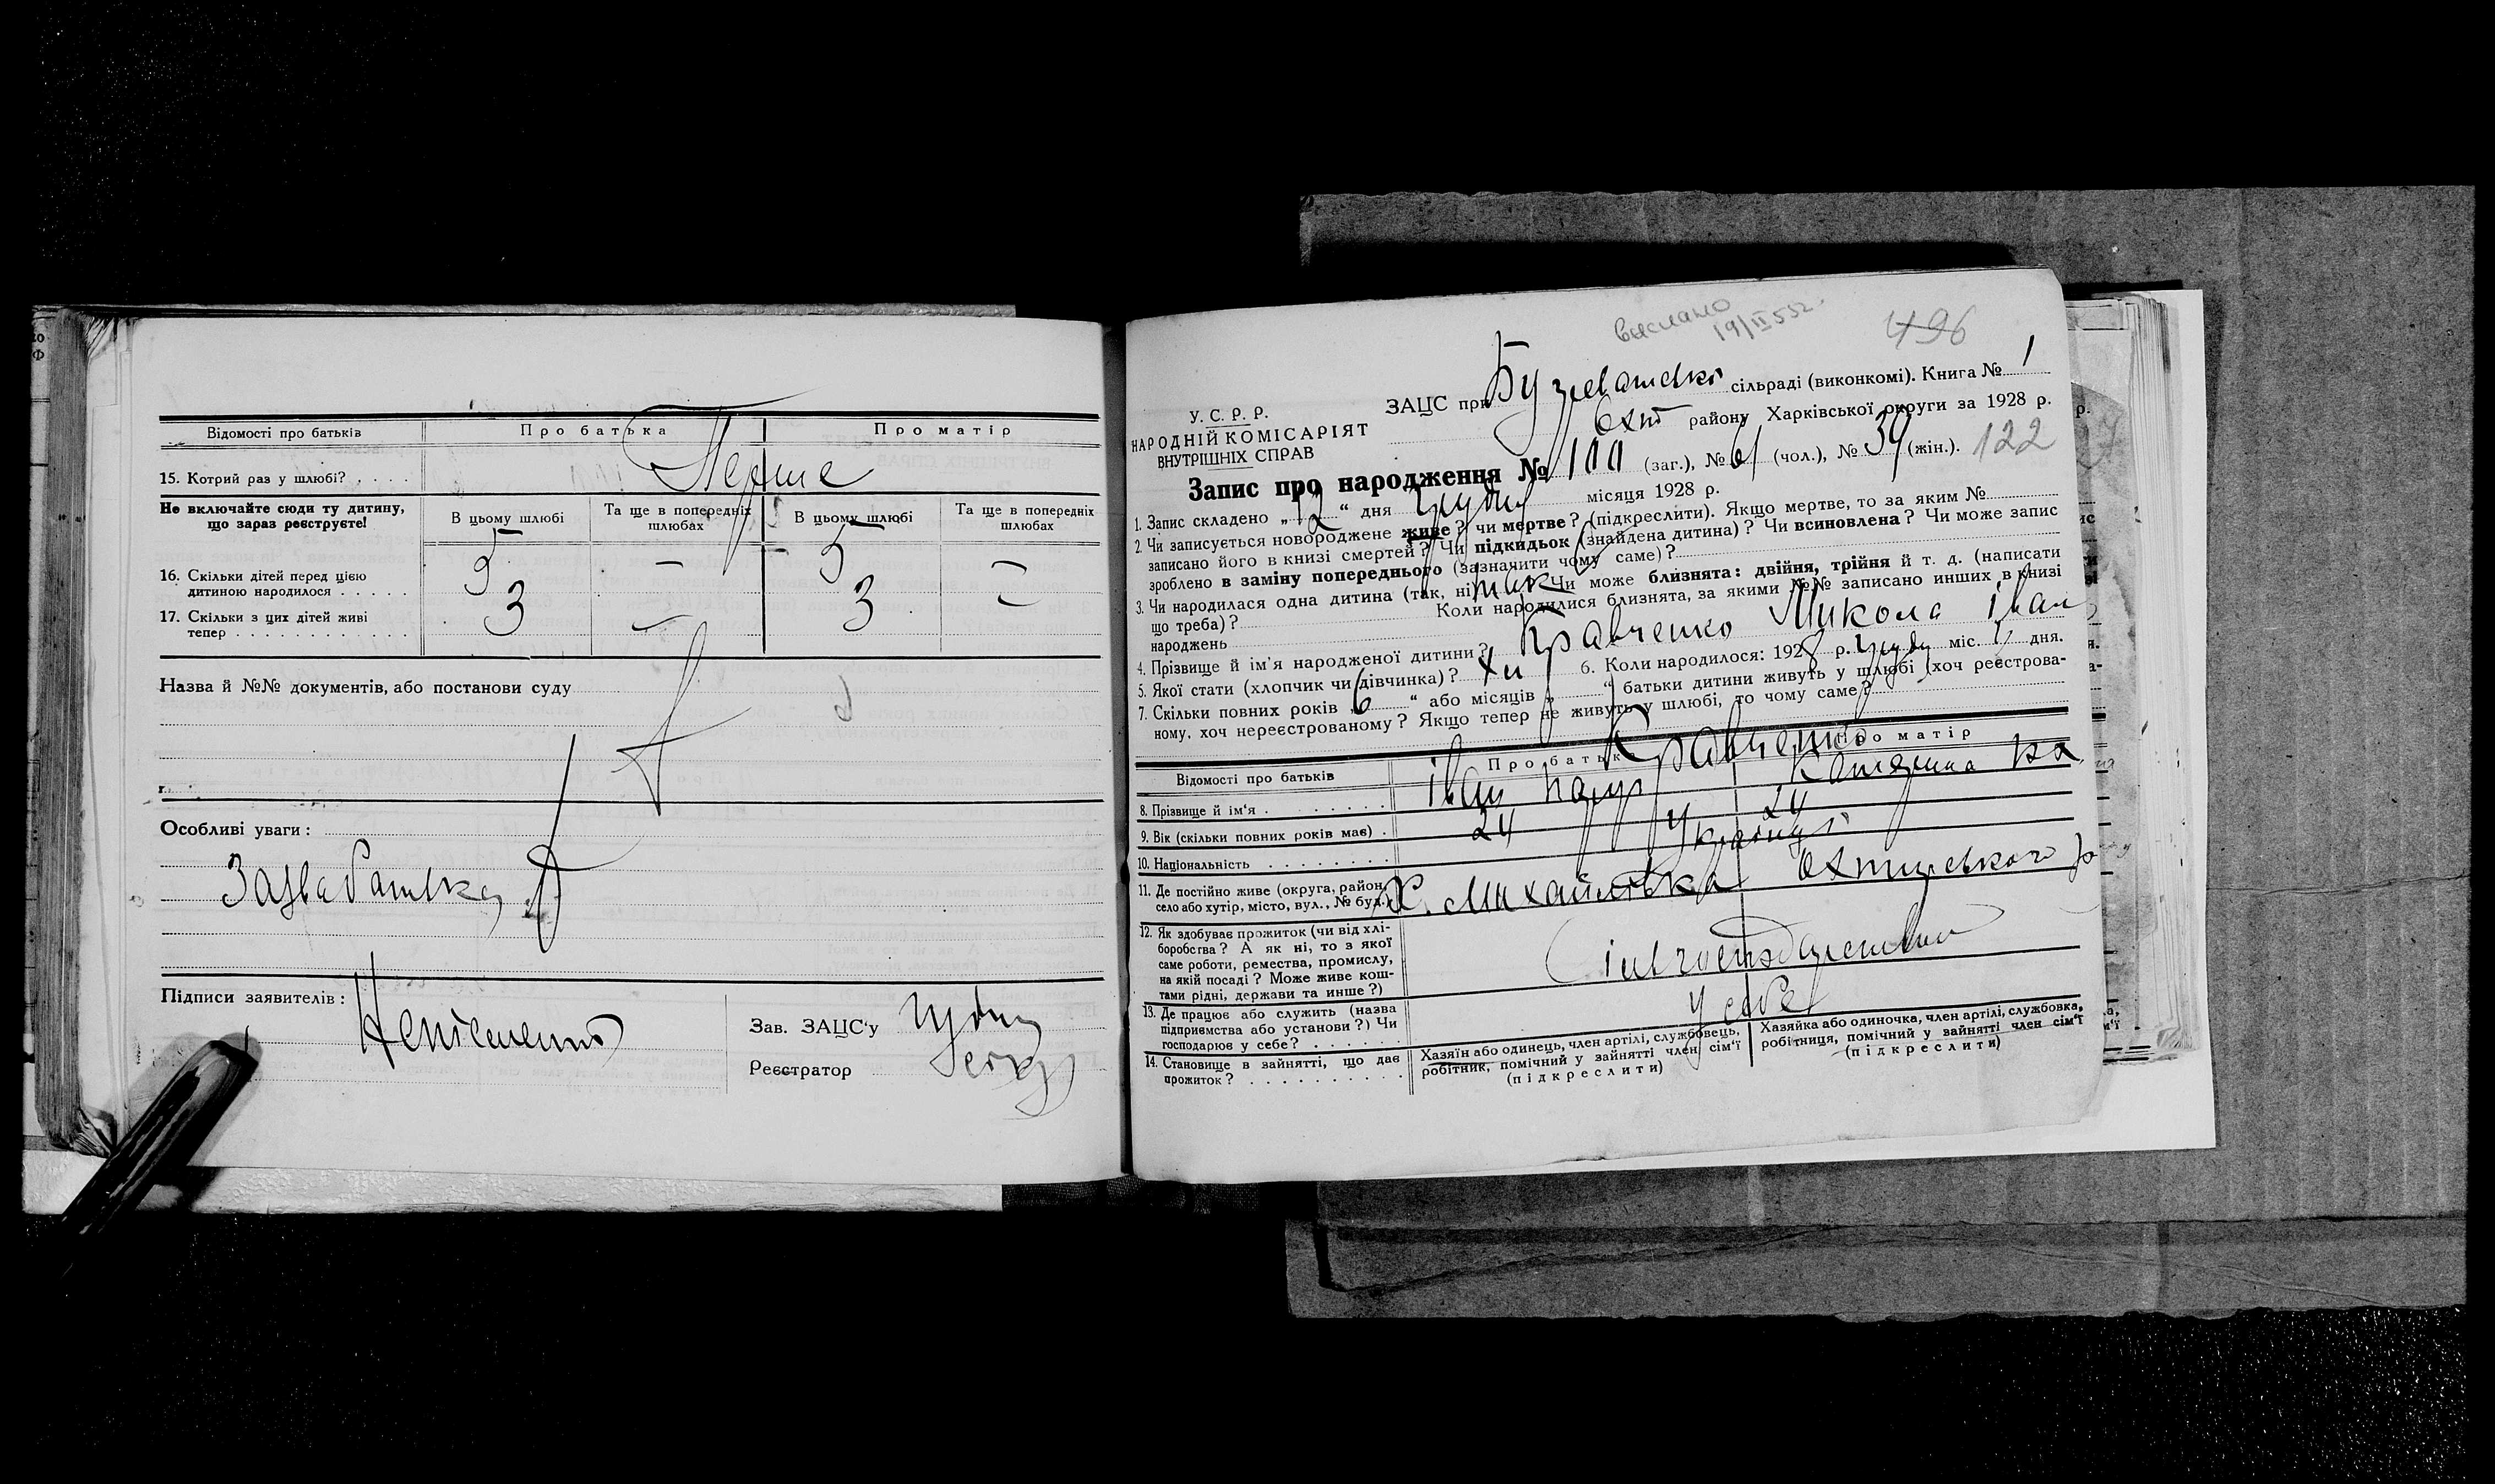 Відомості про батьків
Про батька
Про матір
15. Котрий раз у шлюбі? . . . .
Перше
Не включайте сюди ту дитину,
що зараз реєструєте!
В цьому шлюбі
Та ще в попередніх
шлюбах
В цьому шлюбі
Та ще в попередніх
шлюбах
16. Скільки дітей перед цією
дитиною народилося . . . . .
5 — 5 —
17. Скільки з цих дітей живі
тепер . . . . . . . . . . . .
3 — 3 —
Назва й №№ документів, або постанови суду
Особливі уваги:
Підписи заявителів:
Зав. ЗАЦС'у
Реєстратор
496
У. С. Р. Р.
НАРОДНІЙ КОМІСАРІЯТ
ВНУТРІШНІХ СПРАВ
ЗАЦС при сільраді (виконкомі). Книга № 1
Охт району Харківської округи за 1928 р.
Запис про народження № 100 (заг.), № 61 (чол.), № 39 (жін.). 122
1. Запис складено „12“ дня грудня місяця 1928 р.
2. Чи записується новороджене живе? чи мертве? (підкреслити). Якщо мертве, то за яким №
записано його в книзі смертей? Чи підкидьок (знайдена дитина)? Чи всиновлена? Чи може запис
зроблено в заміну попереднього (зазначити чому саме)?
3. Чи народилася одна дитина (так, ні) так Чи може близнята: двійня, трійня й т. д. (написати
що треба)? Коли народилися близнята, за якими №№ записано инших в книзі
народжень
4. Прізвище й ім'я народженої дитини? Кравченко Микола Іван
5. Якої стати (хлопчик чи дівчинка)? хл 6. Коли народилося: 1928 р. груд міс. дня.
7. Скільки повних років „6“ або місяців „ “ батьки дитини живуть у шлюбі (хоч реєстрова-
ному, хоч нереєстрованому? Якщо тепер не живуть у шлюбі, то чому саме?
Відомості про батьків
Про батька
Про матір
8. Прізвище й ім'я . . . . . . . .
Кравченко
Іван
Катерина
9. Вік (скільки повних років має) .
24 24
10. Національність . . . . . . . .
Українці
11. Де постійно живе (округа, район,
село або хутір, місто, вул., № буд.)
Х. Михайлівка Охтирського р
12. Як здобуває прожиток (чи від хлі-
боробства? А як ні, то з якої
саме роботи, ремества, промислу,
на якій посаді? Може живе кош-
тами рідні, держави та инше?)
13. Де працює або служить (назва
підприємства або установи?) Чи
господарює у себе? . . . . . .
У себе
14. Становище в зайнятті, що дає
прожиток? . . . . . . . . . .
Хазяїн або одинець, член артілі, службовець,
робітник, помічний у зайнятті член сім'ї
(підкреслити)
Хазяйка або одиночка, член артілі, службовка,
робітниця, помічний у зайнятті член сім'ї
(підкреслити)